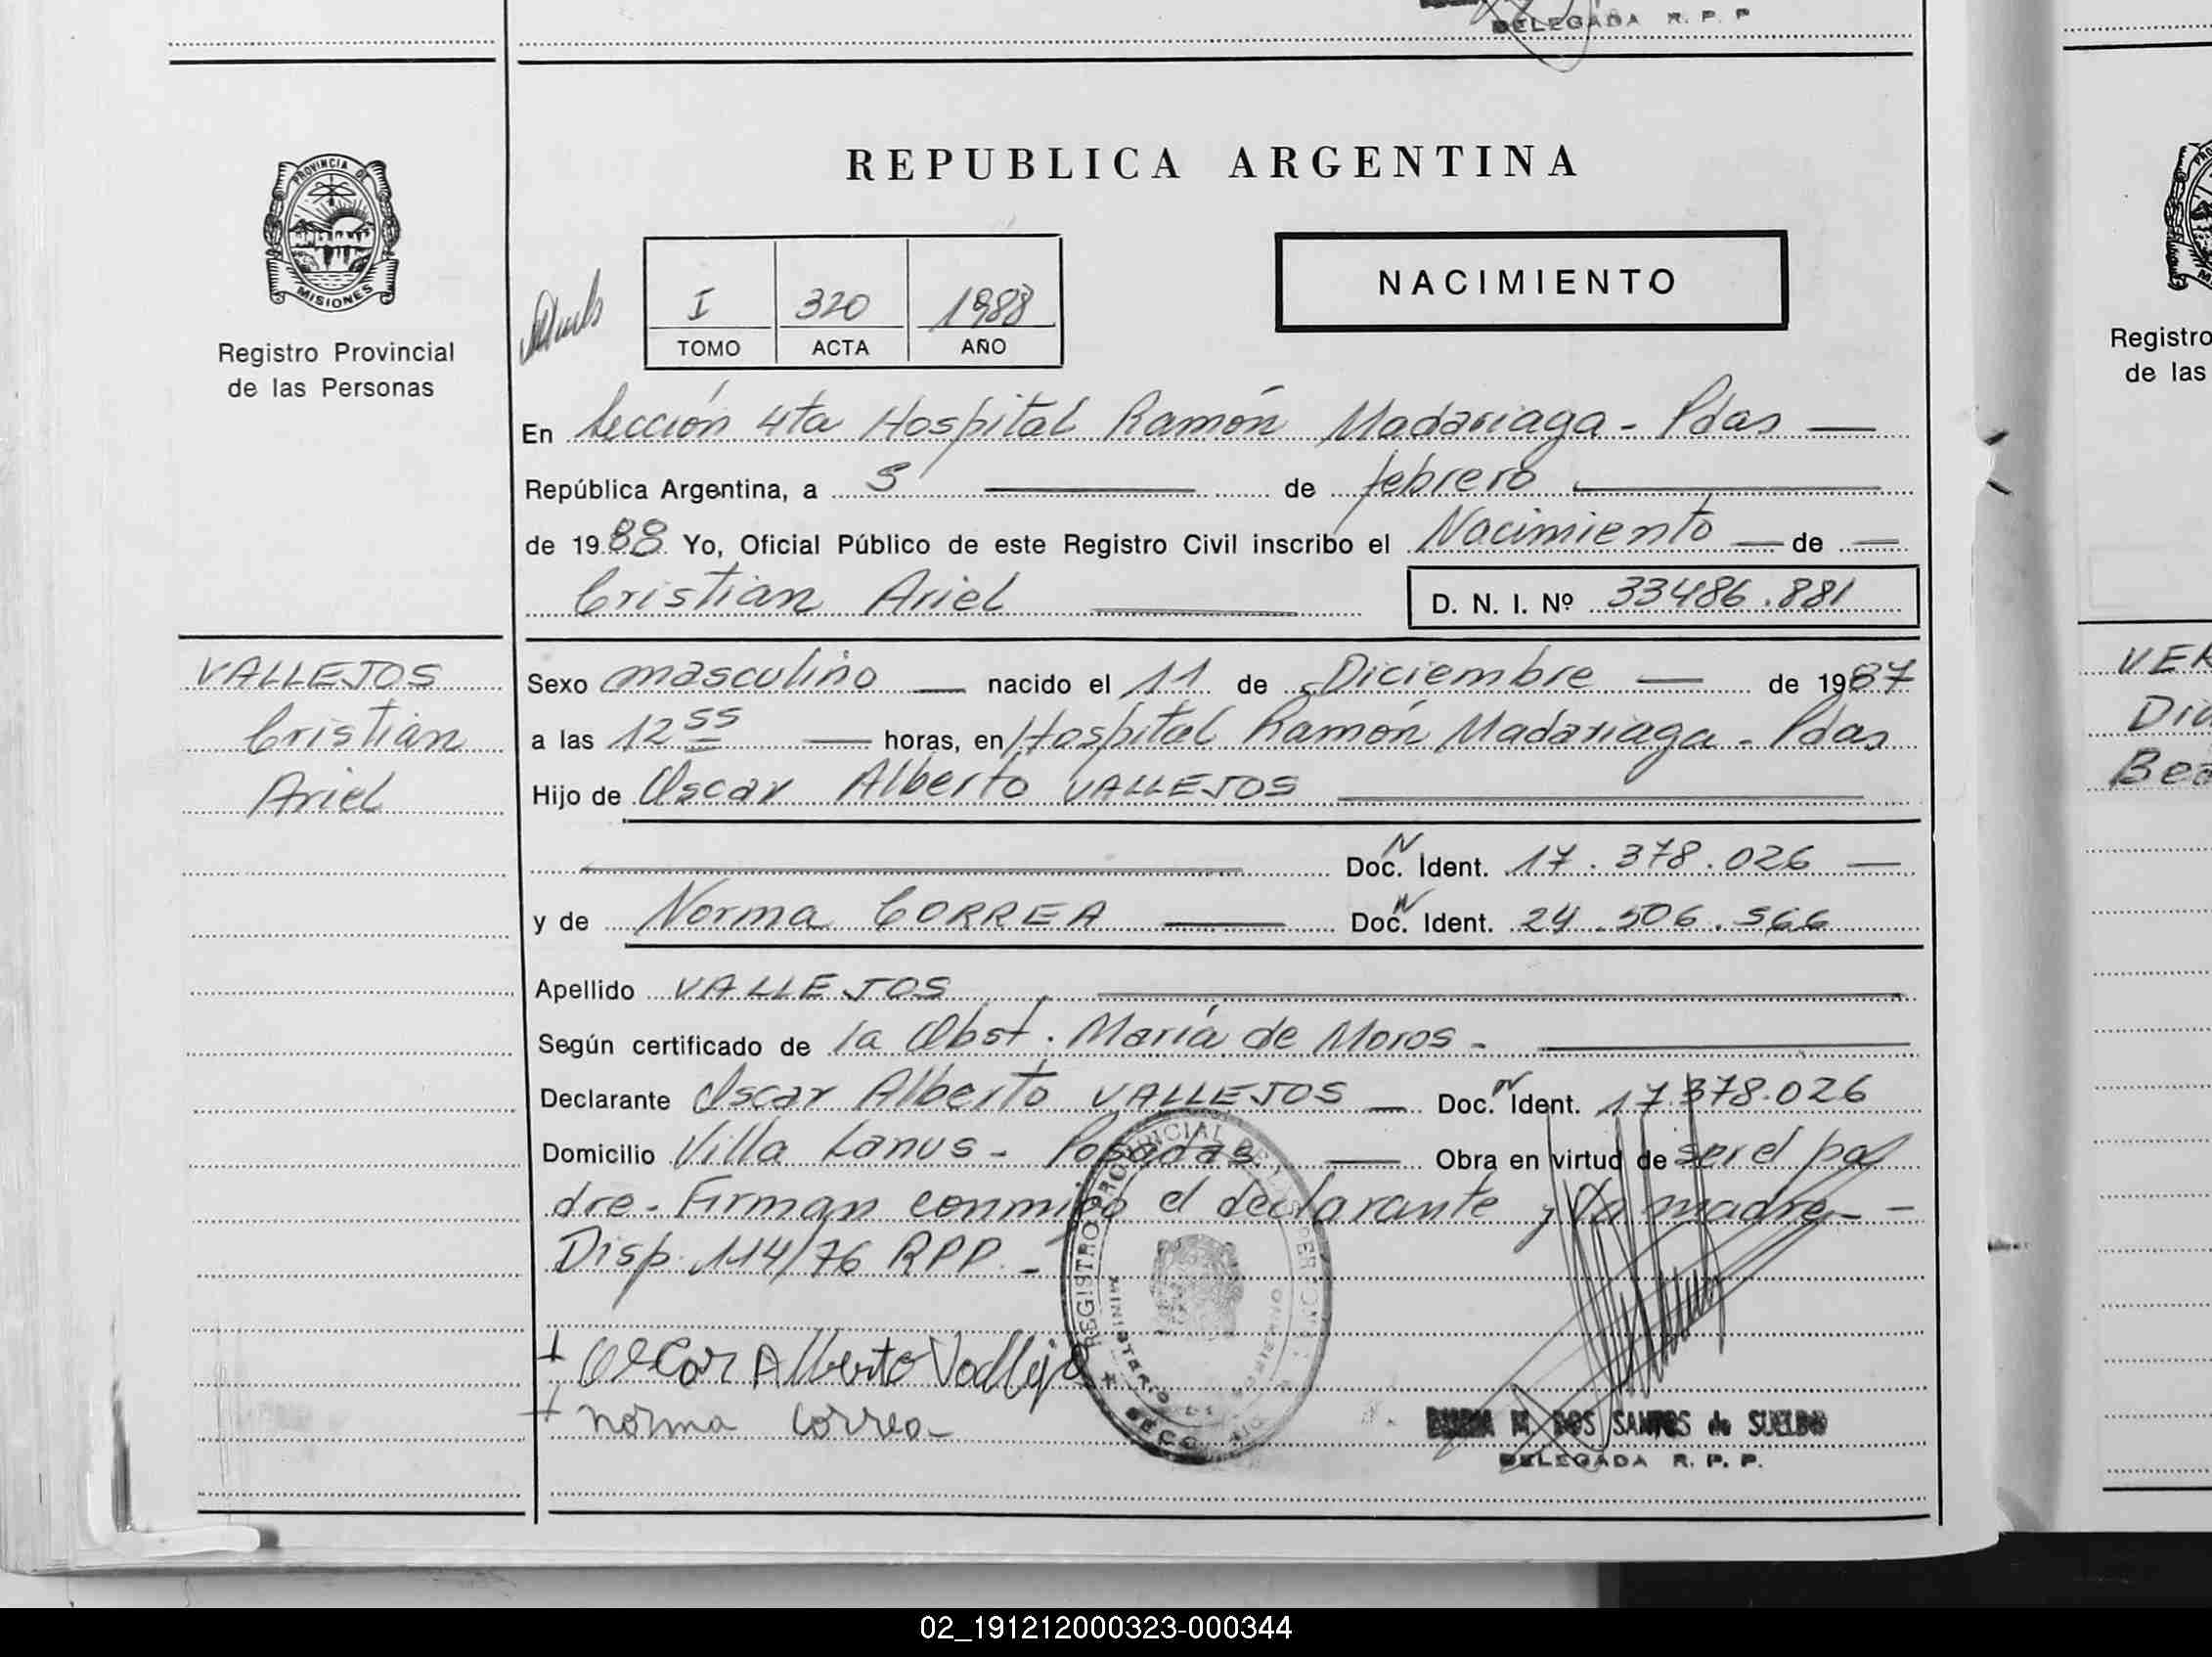 DELEGADA R. P. P
REPUBLICA ARGENTINA
PROVINCIA DE
MISIONES
Registro Provincial
de las Personas
I 320 1988
TOMO ACTA AÑO
NACIMIENTO
En Sección 4ta Hospital Ramón Madariaga - Pdas
República Argentina, a 5 de febrero
de 1988 Yo, Oficial Público de este Registro Civil inscribo el Nacimiento de
Cristian Ariel D. N. I. Nº 33486.881
VALLEJOS
Cristian
Ariel
Sexo masculino nacido el 11 de Diciembre de 1987
a las 12 55 horas, en Hospital Ramón Madariaga - Pdas
Hijo de Oscar Alberto VALLEJOS
Doc. N Ident. 17.378.026
y de Norma CORREA Doc. N Ident. 24.506.566
Apellido VALLEJOS
Según certificado de la Obst. María de Moros -
Declarante Oscar Alberto VALLEJOS Doc. N Ident. 17.378.026
Domicilio Villa Lanus - Posadas. Obra en virtud de ser el pa
dre - Firman conmigo el declarante y la madre - -
Disp. 114/76 RPP. -
Oscar Alberto Vallejo
norma correa
REGISTRO PROVINCIAL DE LAS PERSONAS
M. DOS SANTOS de SUELDO
DELEGADA R. P. P.
Registro
de las
VER
Bea
02_191212000323-000344